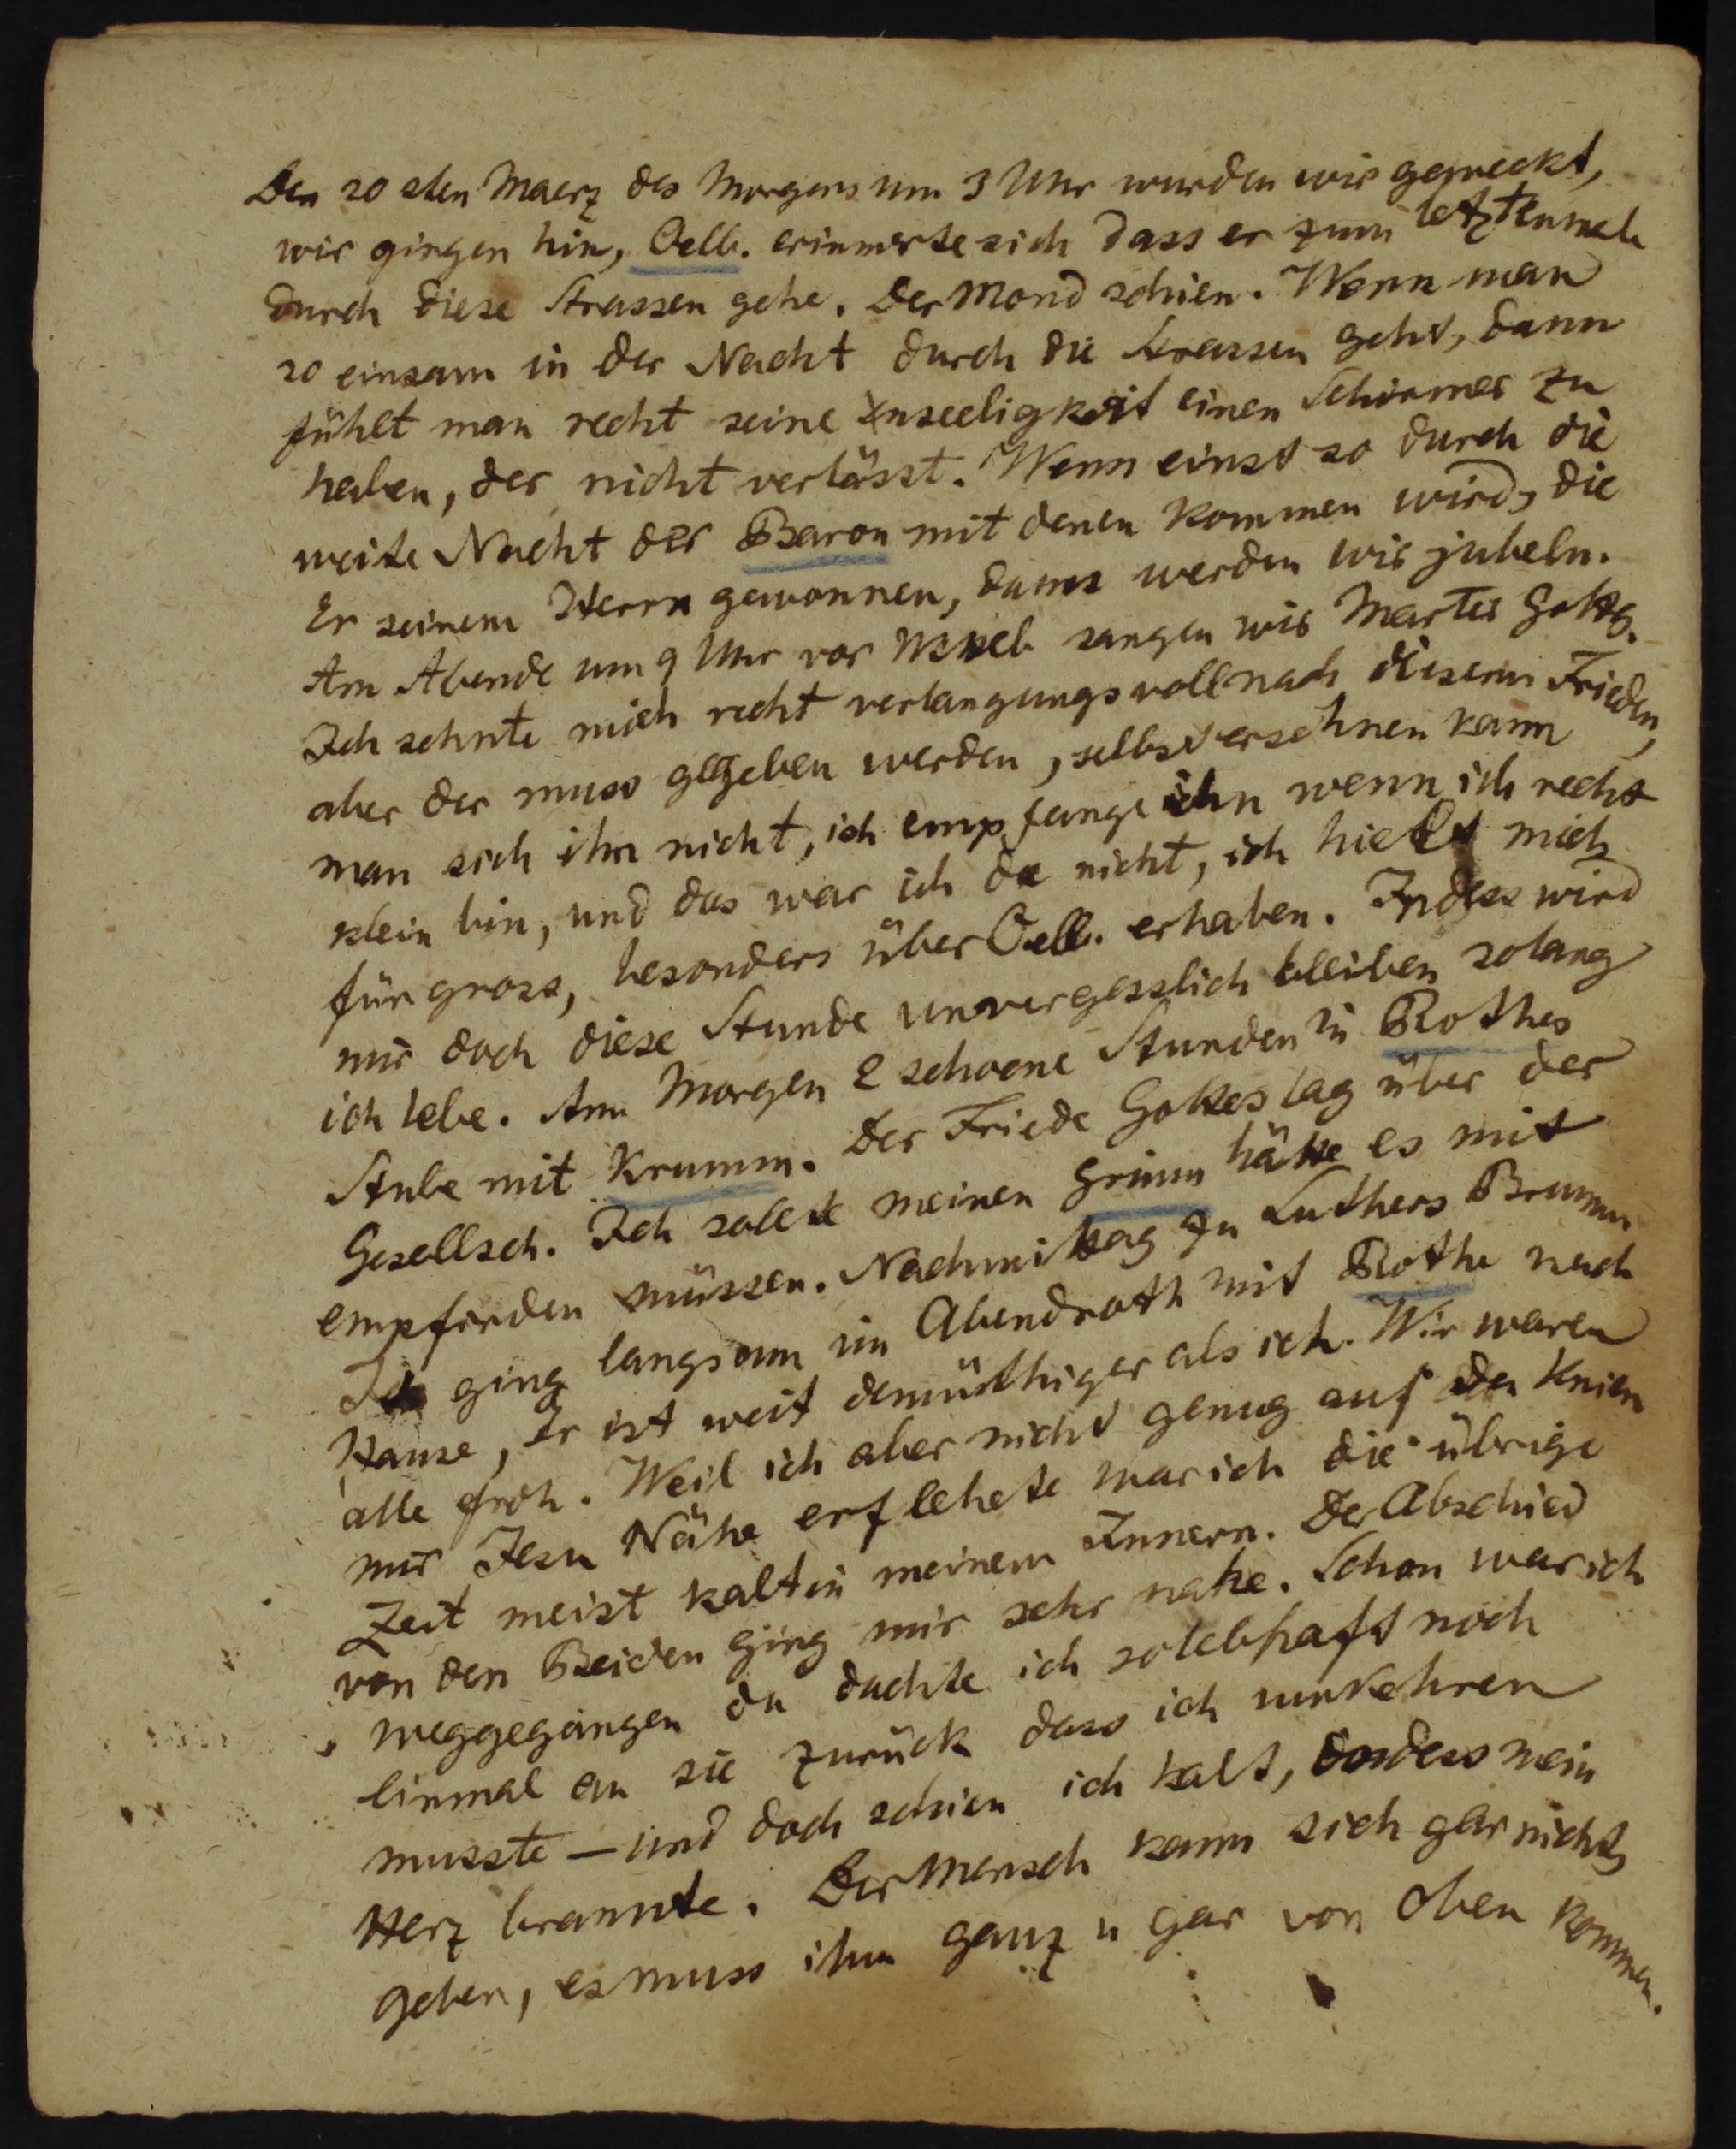 Den 20 sten Maerz des Morgens um 3 Uhr wurden wir geweckt,
wir gingen hin, Oelb. erinnerte sich dass er zum letztenmale
durch diese Strassen gehe. Der Mond schien. Wenn man
so einsam in der Nacht durch die Strassen geht, dann
fühlt man recht seine Inseeligkeit einen Schirmer zu
haben, der nicht verlässt. Wenn einst so durch die
weite Nacht der Baron mit denen kommen wird, die
Er seinem Herrn gewonnen, dann werden wir jubeln.
Am Abende um 9 Uhr vor sangen wir Marter Gotts.
Ich sehnte mich recht verlangungsvoll nach diesem Frieden,
aber der muss gegeben werden, selbst ersehnen kann
man sich ihn nicht, ich empfange ihn wenn ich recht
klein bin, und das war ich da nicht, ich hielt mich
für gross, besonders über Oelb. erhaben. Indess wird
mir doch diese Stunde unvergesslich bleiben solang
ich lebe. Am Morgen 2 schoene Stunden in Rothes
Stube mit Krumm. Der Friede Gottes lag über der
Gesellsch. Ich sollte meinen Grimm hätte es mit
empfinden müssen. Nachmittag zu Luthers Brunnen
Ich ging langsam im Abendroth mit Rothe nach
Hause, Er ist weit demüthiger als ich. Wir waren
alle froh. Weil ich aber nicht genug auf den Knien
mir Jesu Nähe erflehete war ich die übrige
Zeit meist kalt in meinem Innern. Der Abschied
von den Beiden ging mir sehr nahe. Schon war ich
weggegangen da dachte ich so lebhaft noch
einmal an sie zurück dass ich umkehren
musste – und doch schien ich kalt, indess mein
Herz brannte. Der Mensch kann sich gar nichts
geben, es muss ihm ganz u gar von Oben kommen.